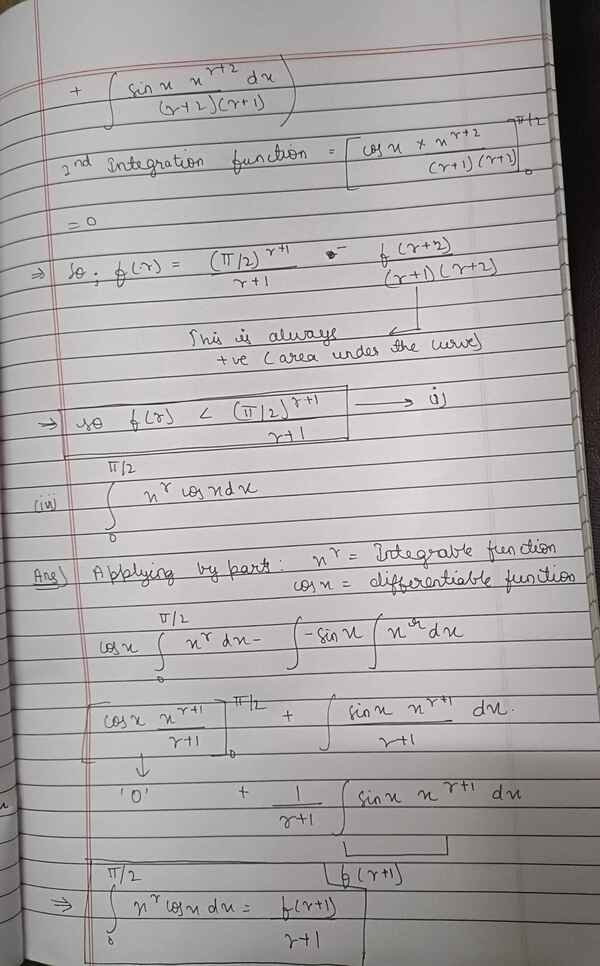 + ∫ sin x x^(r+2) dx / (r+2)(r+1) )
2nd Integration function = [cos x × x^(r+2) / (r+1)(r+2)]_0^(π/2)
= 0
⇒ so; f(r) = (π/2)^(r+1) / r+1 - f(r+2) / (r+1)(r+2)
This is always
+ve (area under the curve)
⇒ so f(r) < (π/2)^(r+1) / r+1 → (i)
(iii) ∫_0^(π/2) x^r cos x dx
Ans) Applying by part: x^r = Integrable function
cos x = differentiable function
cos x ∫_0^(π/2) x^r dx - ∫ -sin x ∫ x^r dx
[cos x x^(r+1) / r+1]_0^(π/2) + ∫ sin x x^(r+1) / r+1 dx.
↓
'0' + 1 / r+1 ∫ sin x x^(r+1) dx
f(r+1)
⇒ ∫_0^(π/2) x^r cos x dx = f(r+1) / r+1